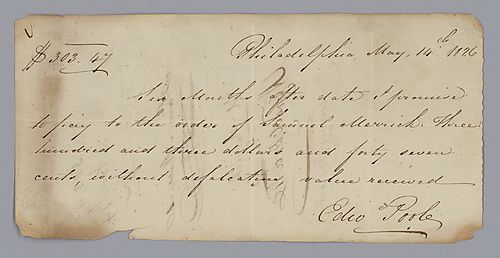 $303.47 Philadelphia, May, 14th 1826
Six Months after date I promise
to pay to the order of Samuel Merrick. Three
hundred and three dollars and forty seven
cents, without defalcation, value received
Edw Poole